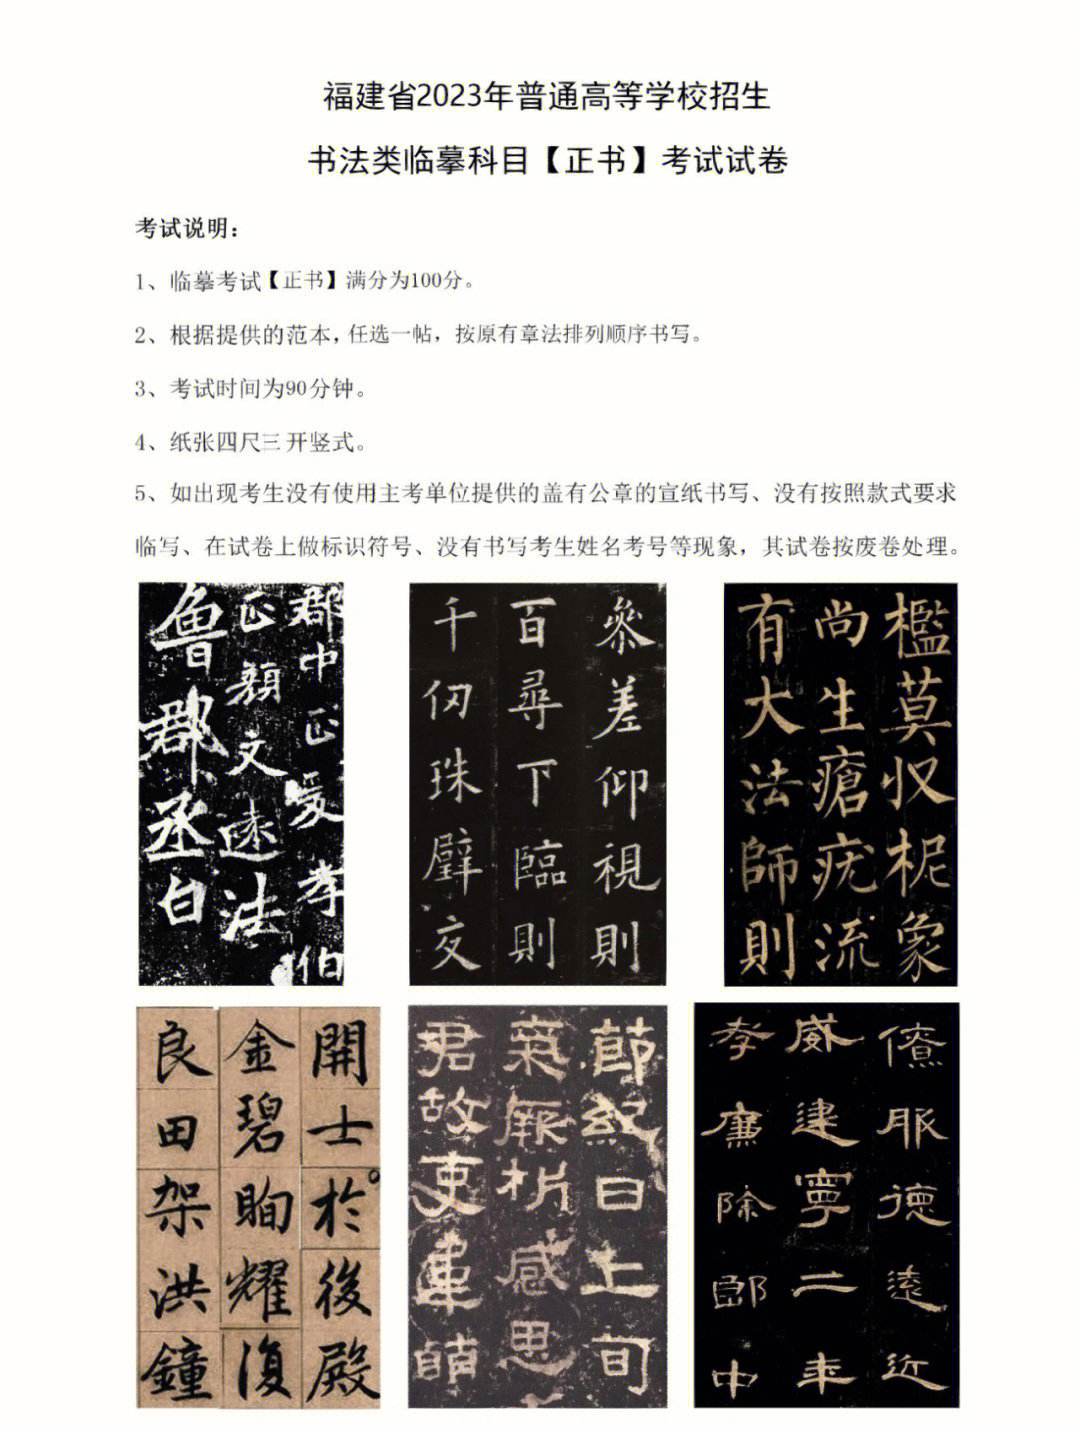 福建省2023年普通高等学校招生
书法类临摹科目【正书】考试试卷
考试说明：
1、临摹考试【正书】满分为100分。
2、根据提供的范本，任选一帖，按原有章法排列顺序书写。
3、考试时间为90分钟。
4、纸张四尺三开竖式。
5、如出现考生没有使用主考单位提供的盖有公章的宣纸书写、没有按照款式要求
临写、在试卷上做标识符号、没有书写考生姓名考号等现象，其试卷按废卷处理。
郡中正爰孝伯
正颜文远法
魯郡丞白
叅差仰視則
百尋下臨則
千仞珠璧交
檻莫収柅象
尚生瘡疣流
有大法師則
開士於後殿
金碧眴耀復
良田架洪鐘
節紀日上旬
感思
君故吏
僚服德遠近
威建寧二年
孝廉除郎中